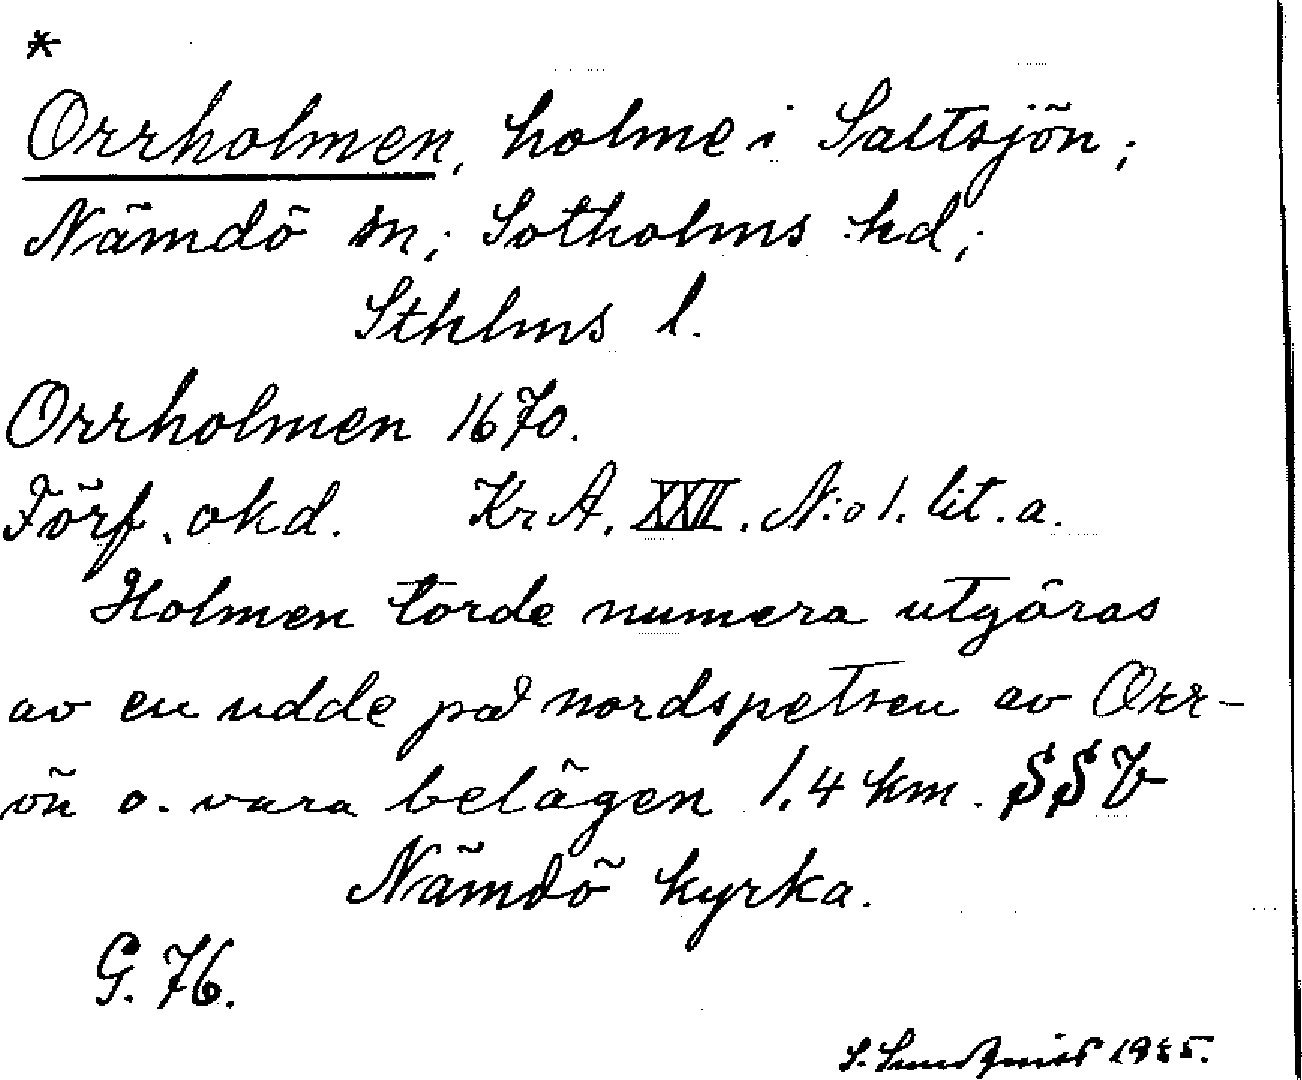 *
Orrholmen, holme i Saltsjön;
Nämdö sn; Sotholms hd;
Sthlms l.
Orrholmen 1670.
Förf. okd. Kr A. XXII. N:o 1. lit. a.
Holmen torde numera utgöras
av en udde på nordspetsen av Orr-
ön o. vara belägen 1.4 km. SSV
Nämdö kyrka.
G. 76.
S. Sundqvist